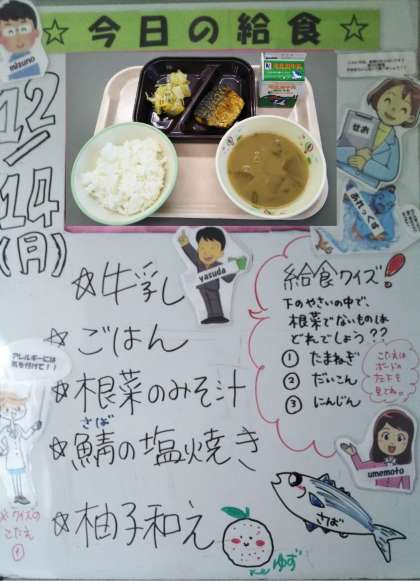 ☆今日の給食☆
mizuno
12/14(月)
せお
あれっくす
yasuda
☆牛乳
☆ごはん
☆根菜のみそ汁
さば
☆鯖の塩焼き
☆柚子和え
ゆず
給食クイズ!
下のやさいの中で、
根菜でないものは
どれでしょう??
① たまねぎ
② だいこん
③ にんじん
こたえは
ボードの
左下を
見てね。
umemoto
さば
アレルギーには
気を付けて!!
☆クイズの
こたえ
①